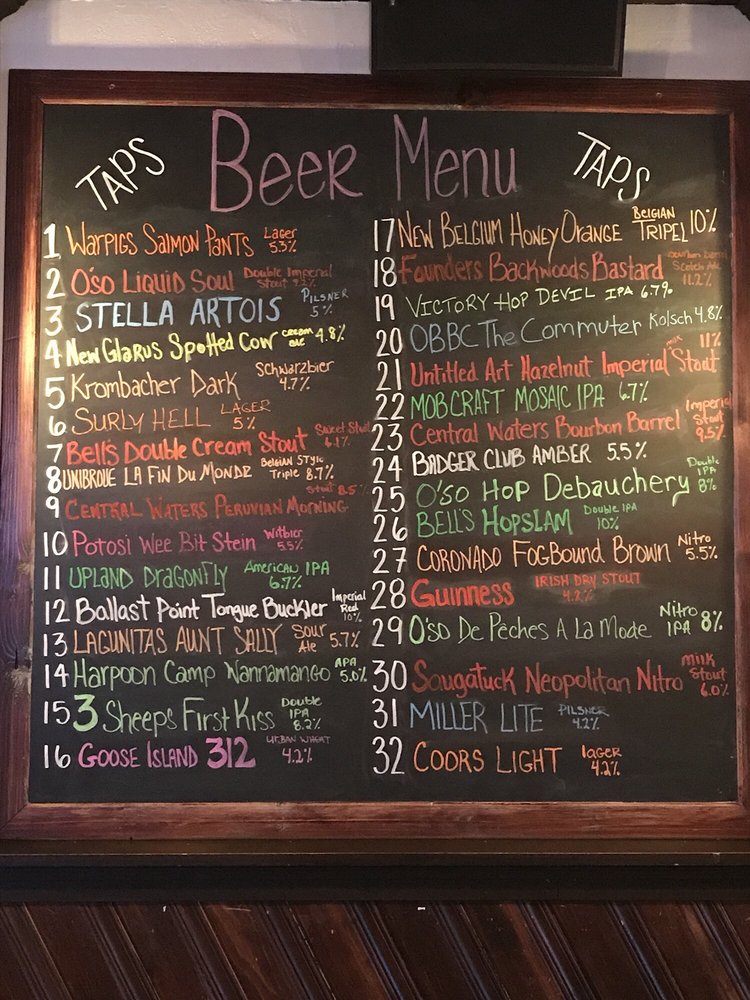 TAPS Beer Menu TAPS
1 Warpigs Salmon Pants Lager 5.3%
2 O'so Liquid Soul Double Imperial Stout 9.2%
3 STELLA ARTOIS PILSNER 5%
4 New Glarus Spotted Cow cream ale 4.8%
5 Krombacher Dark Schwarzbier 4.7%
6 SURLY HELL LAGER 5%
7 Bell's Double Cream Stout Sweet Stout 6.1%
8 UNIBROUE LA FIN DU MONDE Belgian Style Triple 8.7%
9 CENTRAL WATERS PERUVIAN MORNING Stout 8.5%
10 Potosi Wee Bit Stein Witbier 5.5%
11 UPLAND DRAGONFLY AMERICAN IPA 6.7%
12 Ballast Point Tongue Buckler Imperial Red 10%
13 LAGUNITAS AUNT SALLY Sour Ale 5.7%
14 Harpoon Camp Wannamango APA 5.0%
15 3 Sheeps First Kiss Double IPA 8.2%
16 GOOSE ISLAND 312 URBAN WHEAT 4.2%
17 NEW BELGIUM HONEY ORANGE BELGIAN TRIPEL 10%
18 Founders Backwoods Bastard Bourbon Barrel Scotch Ale 11.2%
19 VICTORY HOP DEVIL IPA 6.7%
20 OBBC The Commuter Kolsch 4.8%
21 Untitled Art Hazelnut Imperial milk Stout 11%
22 MOBCRAFT MOSAIC IPA 6.7%
23 Central Waters Bourbon Barrel Imperial Stout 9.5%
24 BADGER CLUB AMBER 5.5%
25 O'so Hop Debauchery Double IPA 8%
26 BELL'S HOPSLAM Double IPA 10%
27 CORONADO FOGBOUND BROWN Nitro 5.5%
28 GUINNESS IRISH DRY STOUT 4.2%
29 O'so De Pêches A La Mode Nitro IPA 8%
30 Saugatuck Neopolitan Nitro milk Stout 6.0%
31 MILLER LITE PILSNER 4.2%
32 COORS LIGHT lager 4.2%